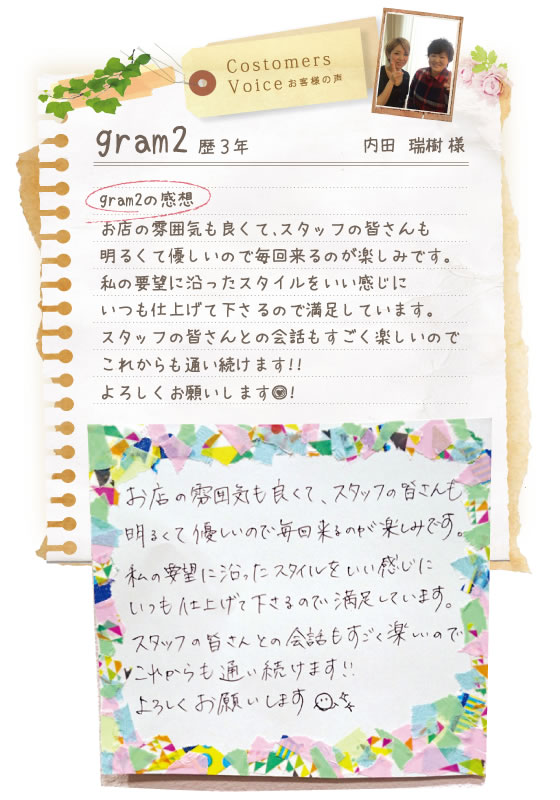 Costomers
Voice お客様の声
gram2 歴3年 内田 瑞樹 様
gram2の感想
お店の雰囲気も良くて、スタッフの皆さんも
明るくて優しいので毎回来るのが楽しみです。
私の要望に沿ったスタイルをいい感じに
いつも仕上げて下さるので満足しています。
スタッフの皆さんとの会話もすごく楽しいので
これからも通い続けます!!
よろしくお願いします◎!
お店の雰囲気も良くて、スタッフの皆さんも
明るくて優しいので毎回来るのが楽しみです。
私の要望に沿ったスタイルをいい感じに
いつも仕上げて下さるので満足しています。
スタッフの皆さんとの会話もすごく楽しいので
これからも通い続けます!!
よろしくお願いします